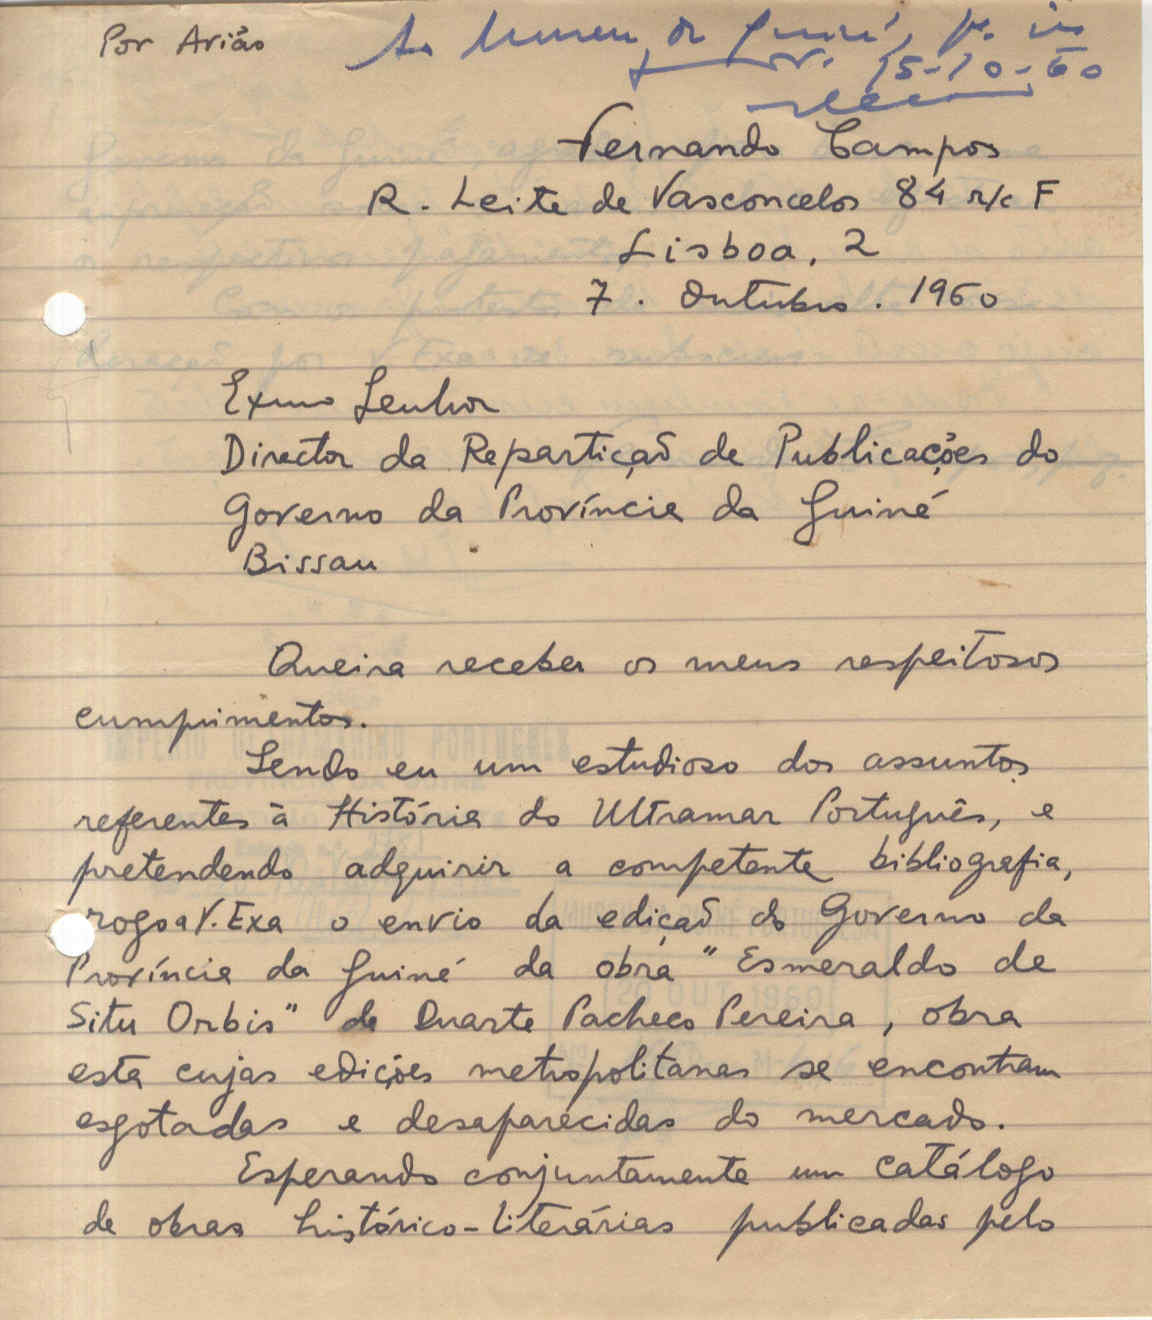 Por Avião
Ao Museu da Guiné, p.
15-10-60
Fernando Campos
R. Leite de Vasconcelos 84 r/c F
Lisboa, 2
7. Outubro. 1960
Exmo Senhor
Director da Repartição de Publicações do
Governo da Província da Guiné
Bissau
Queira receber os meus respeitosos
cumprimentos.
Sendo eu um estudioso dos assuntos
referentes à História do Ultramar Português, e
pretendendo adquirir a competente bibliografia,
rogo a V. Exa o envio da edição do Governo da
Província da Guiné da obra "Esmeraldo de
Situ Orbis" de Duarte Pacheco Pereira, obra
esta cujas edições metropolitanas se encontram
esgotadas e desaparecidas do mercado.
Esperando conjuntamente um catálogo
de obras histórico-literárias publicadas pelo